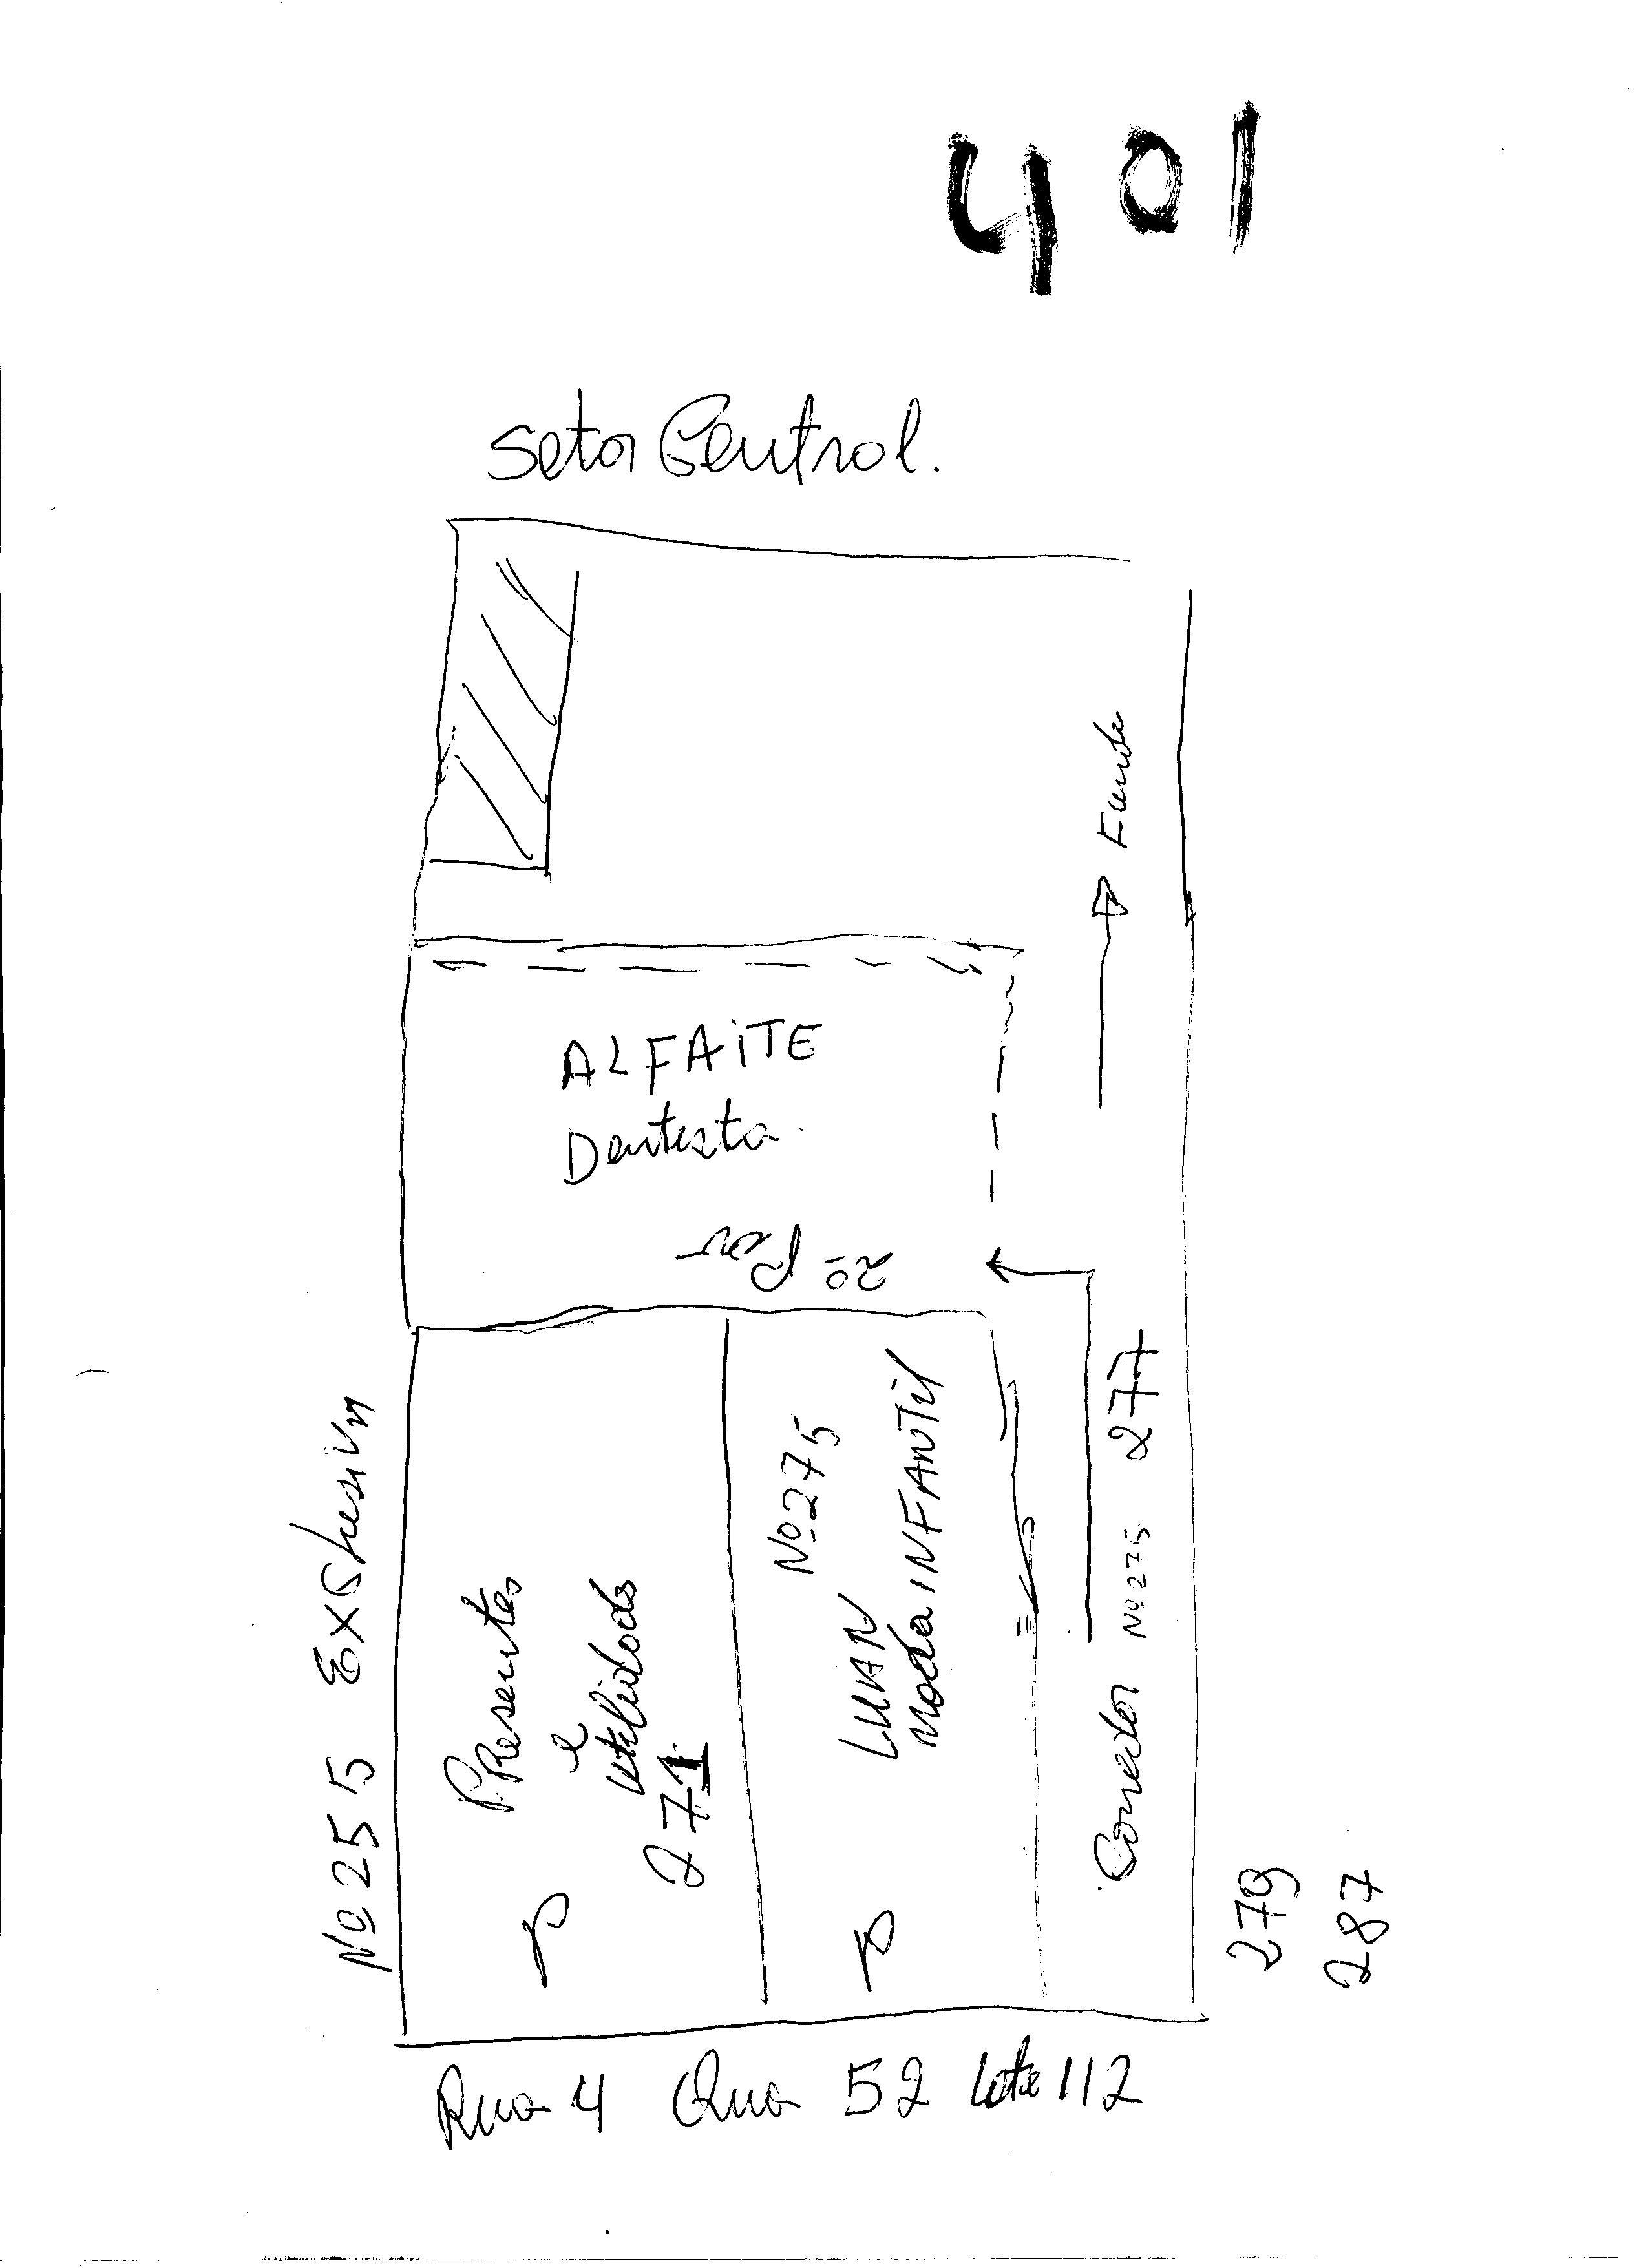 401
Setor Central.
Funde
ALFAiTE
Dentista
2º Pav
Nº 255
PResentes
e
utilidads
271
Nº 275
LUAN
moda INFANTil
Corredor Nº 275 277
279
287
Rua 4 Qua 52 lote 112